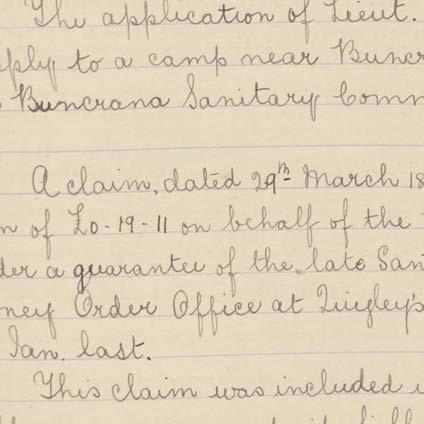 The application of Lieut.
pply to a camp near Buncr
Buncrana Sanitary Comm
A claim, dated 29th March 18
n of £0-19-11 on behalf of the
der a guarantee of the late San
ney Order Office at Quigley's
Jan. last.
This claim was included